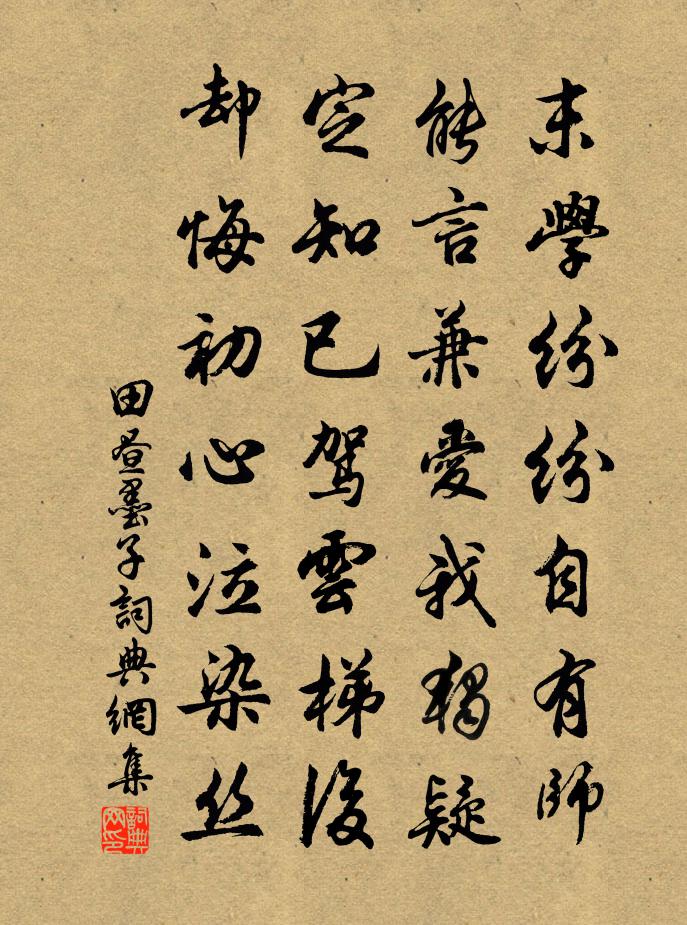 末學紛紛自有師
能言兼愛我獨疑
定知已駕雲梯後
却悔初心泣染丝
田晝墨子詞典網集
詞典网印